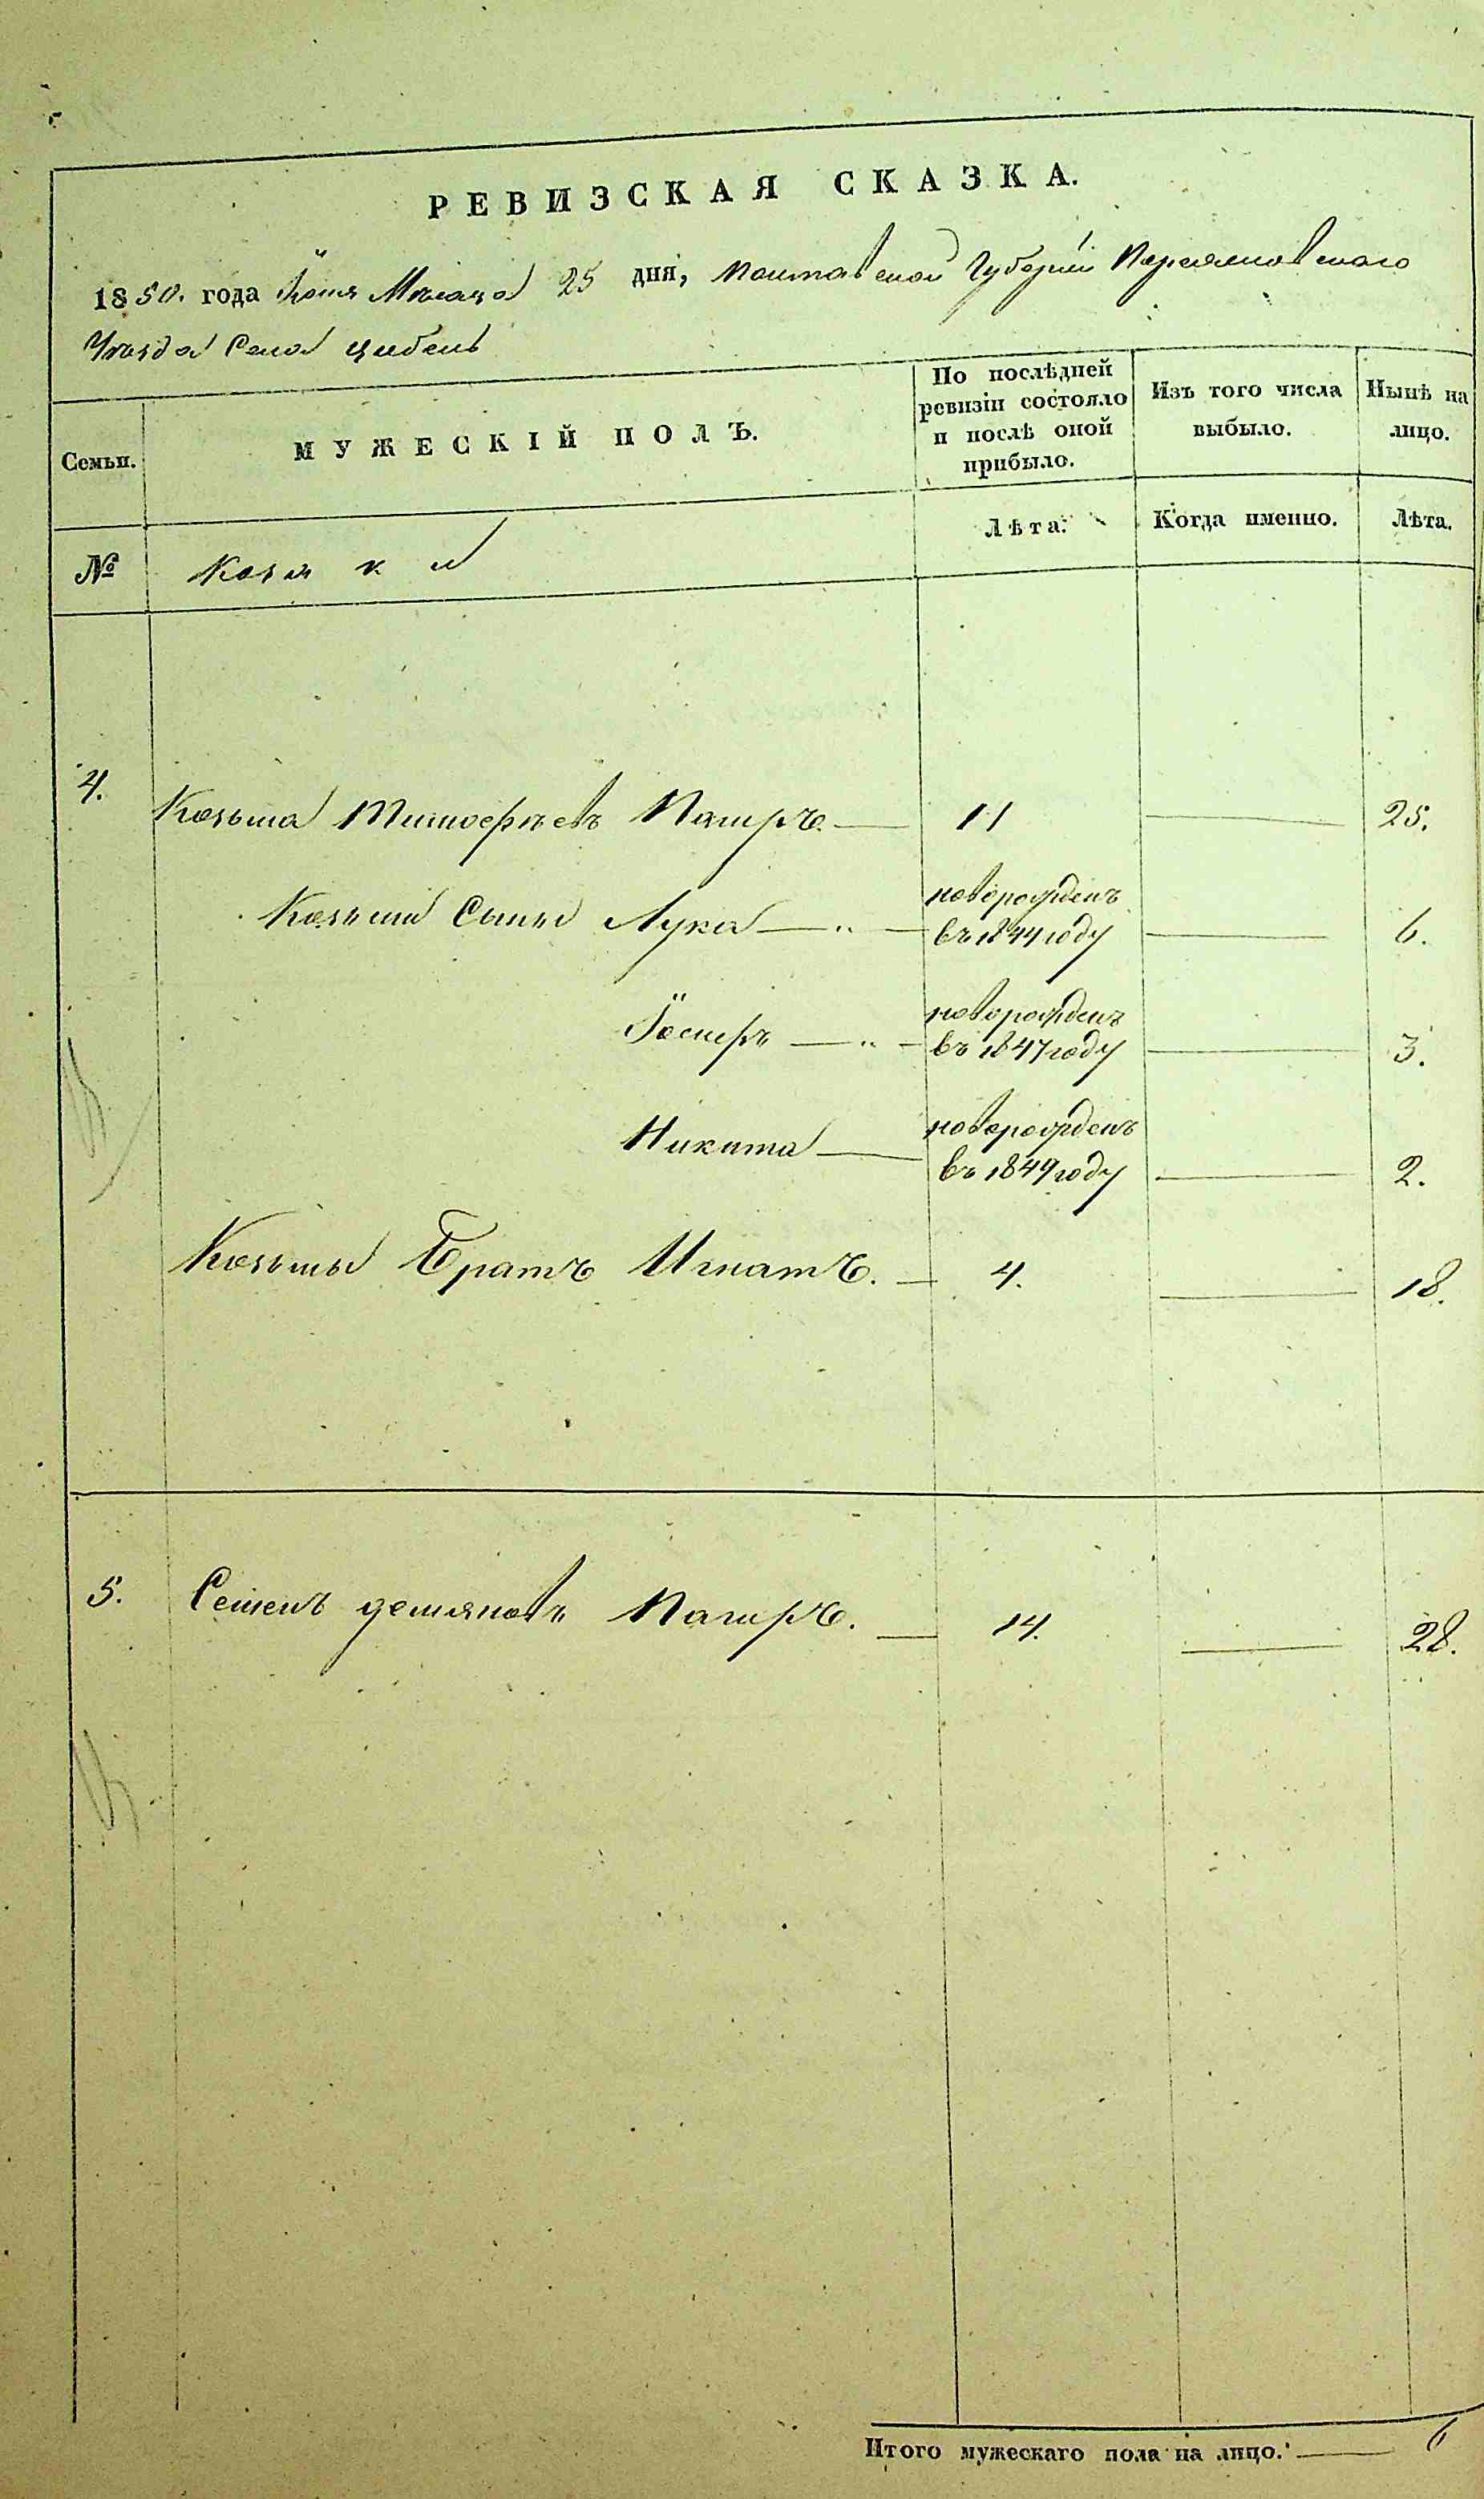 РЕВИЗСКАЯ СКАЗКА.
1850. года Іюня Мѣсяца 25 дня, Полтавской Губерніи Переяславского
Уѣзда Села Цибель
Семьи.
МУЖЕСКІЙ ПОЛЪ.
По послѣдней
ревизіи состояло
и послѣ оной
прибыло.
Изъ того числа
выбыло.
Нынѣ на
лицо.
Лѣта.
Когда именно.
Лѣта.
№
Козаки
4. Козьма Тимофѣевъ 11 25.
Козьмы Сыны Лука новорожденъ
въ 1844 году 6.
Іосифъ новорожденъ
въ 1847 году 3.
Никита новорожденъ
въ 1849 году 2.
Козьмы Братъ Игнатъ. 4. 18.
5. Семенъ Демяновъ 14. 28.
Итого мужескаго пола на лицо. 6